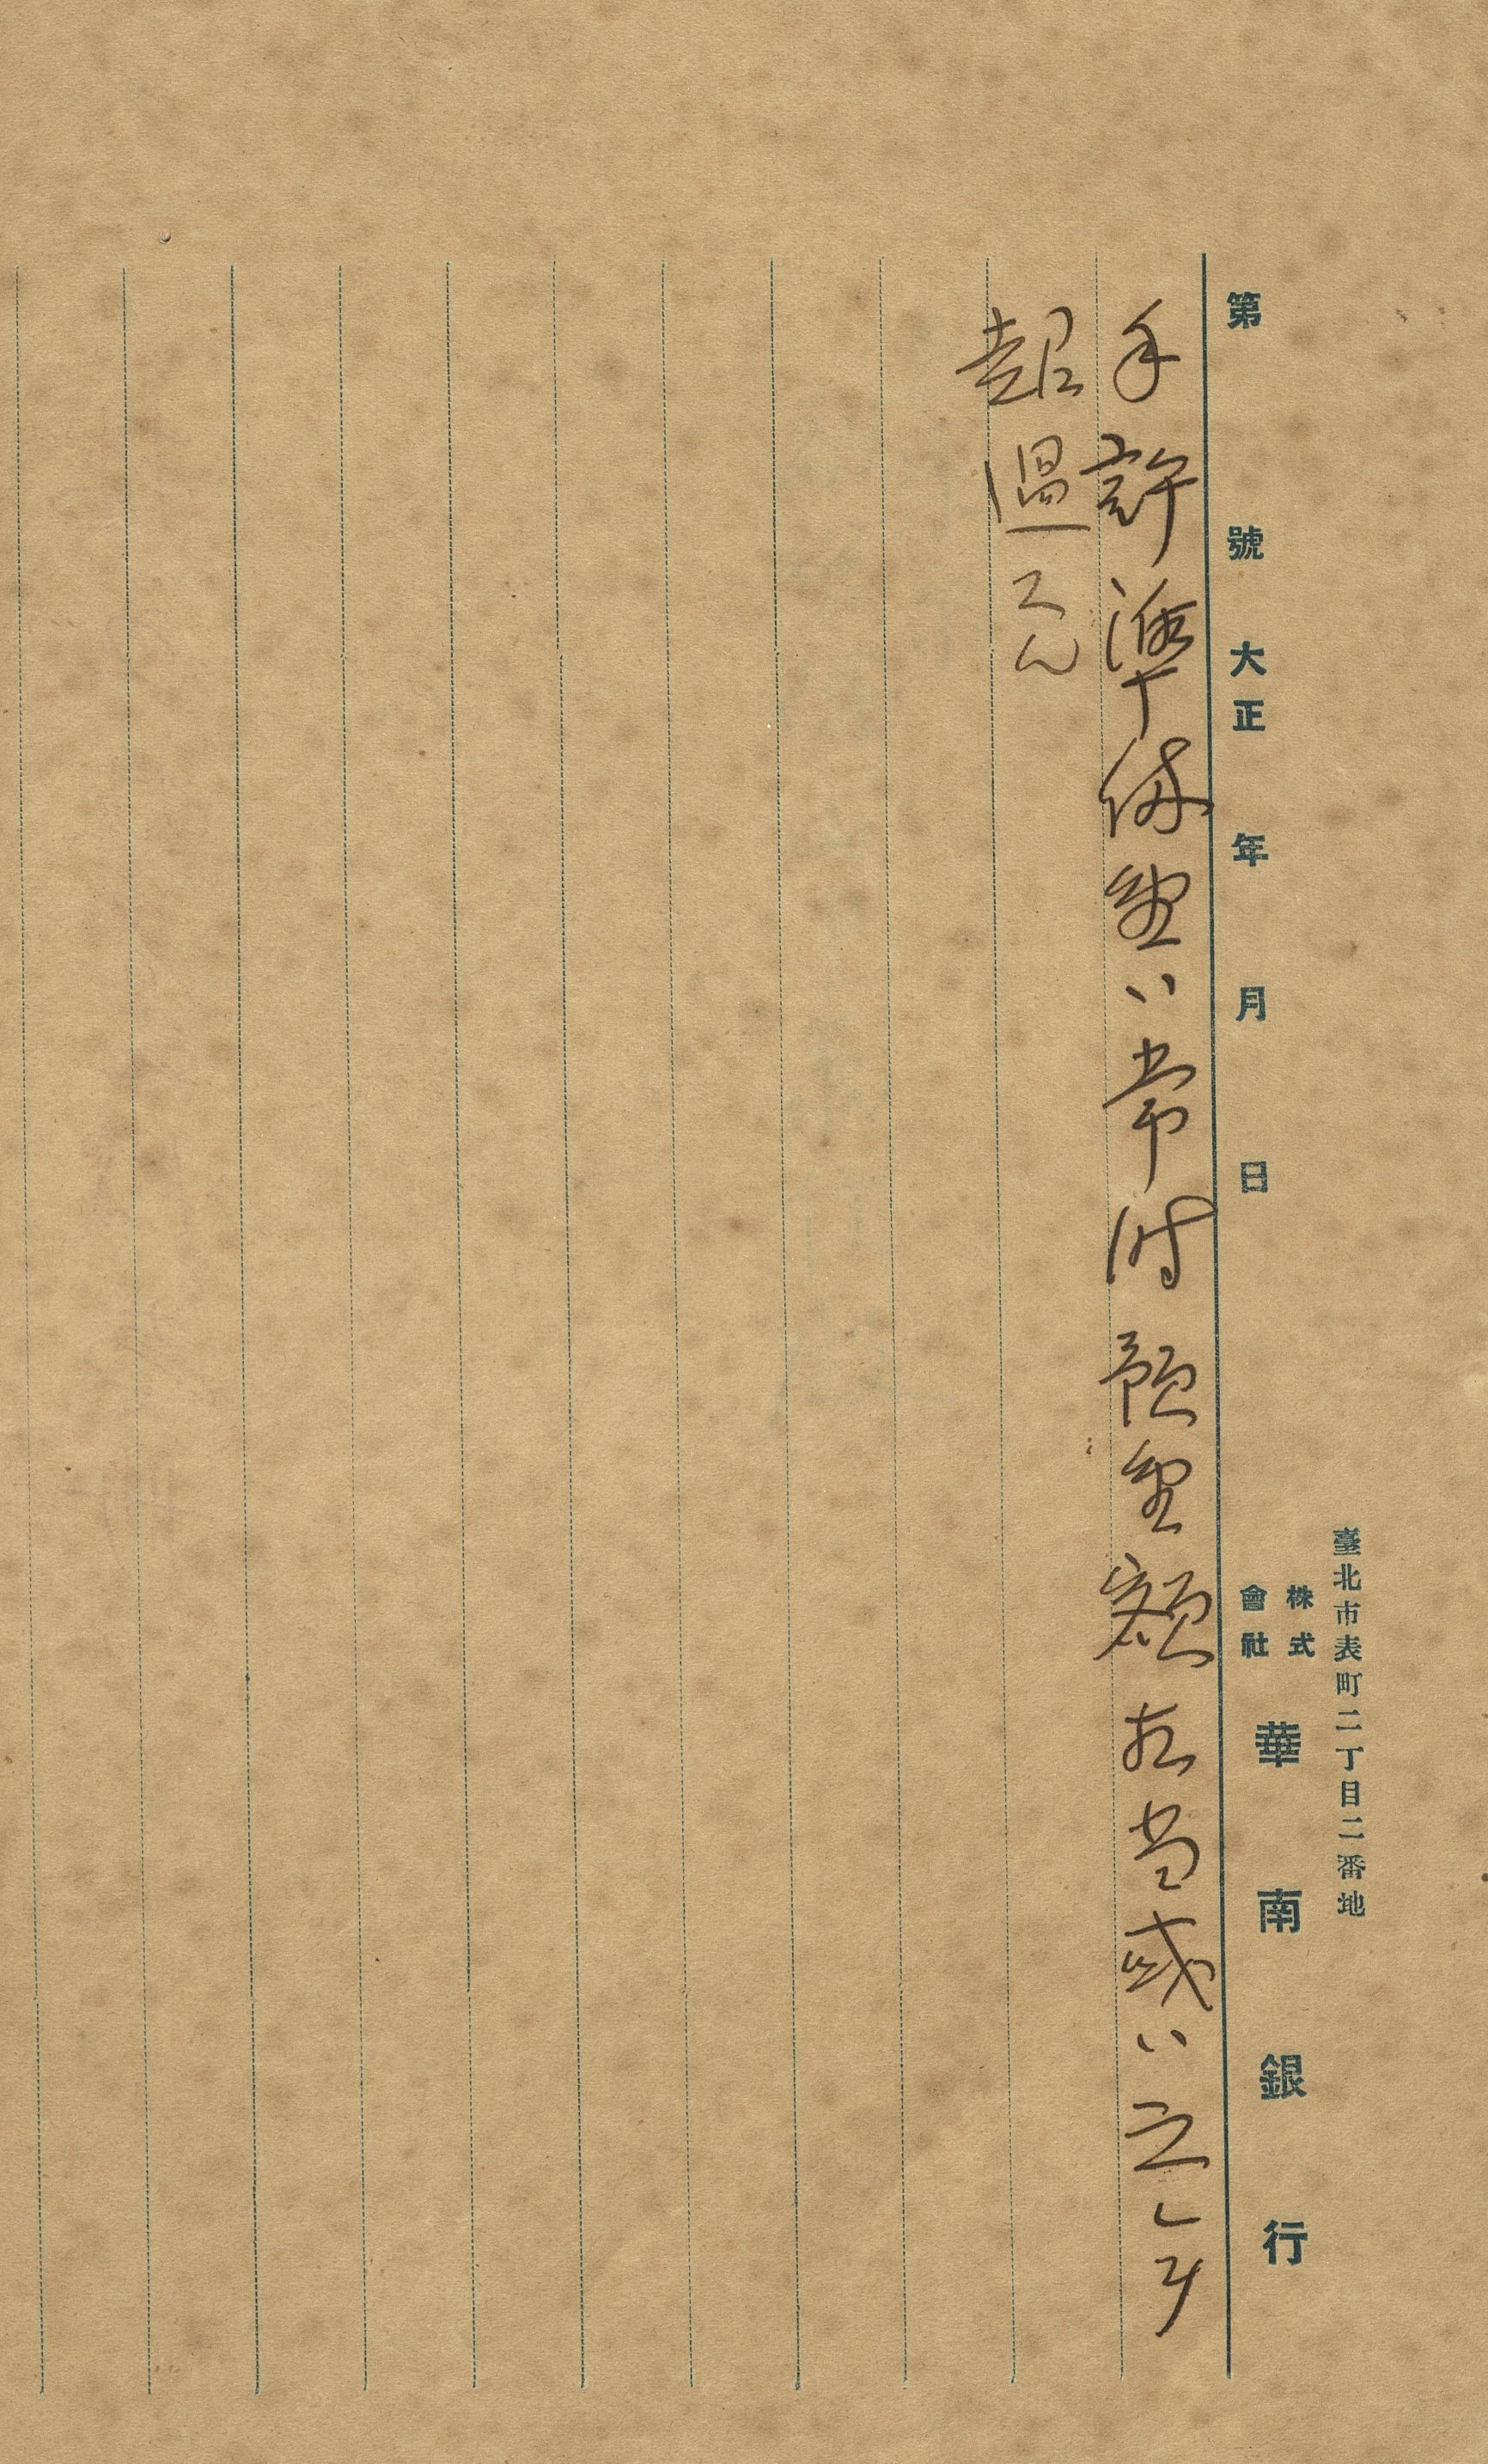 臺北市表町二丁目二番地
第 號 大正 年 月 日 株式會社 華南銀行
手許準備金ハ常時預金額相当或ハ之レヲ
超過スル